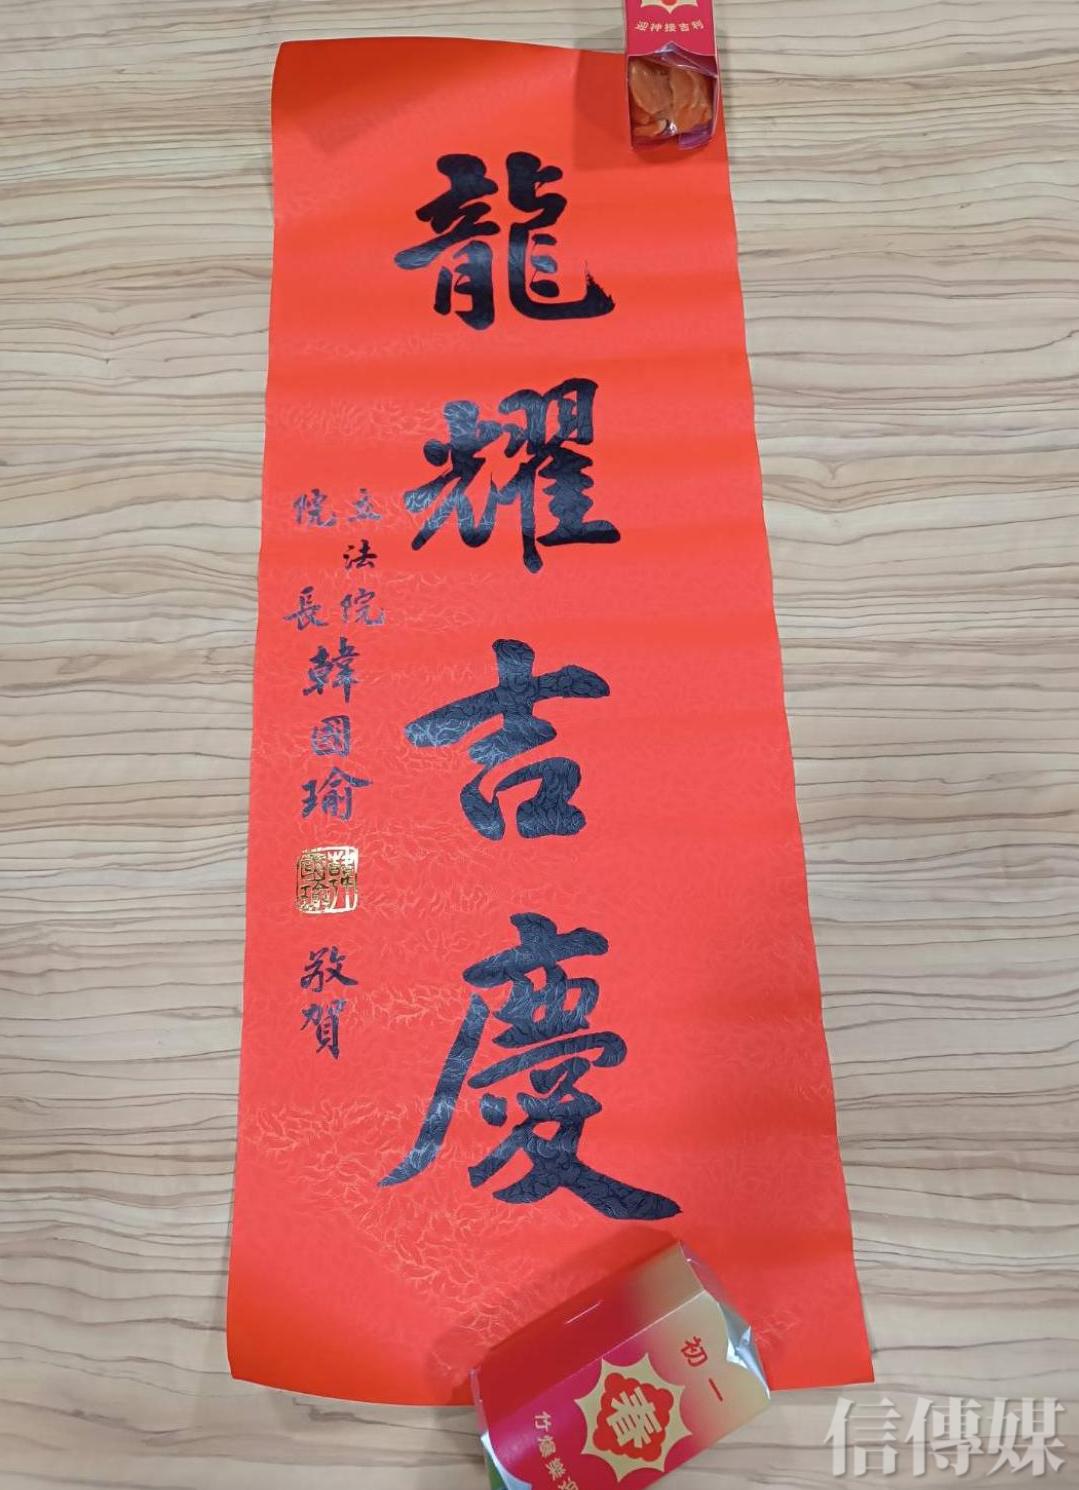 迎神接吉利
龍耀吉慶
立法院
院長
韓國瑜
韓國瑜
敬賀
初一
春
竹爆
信傳媒